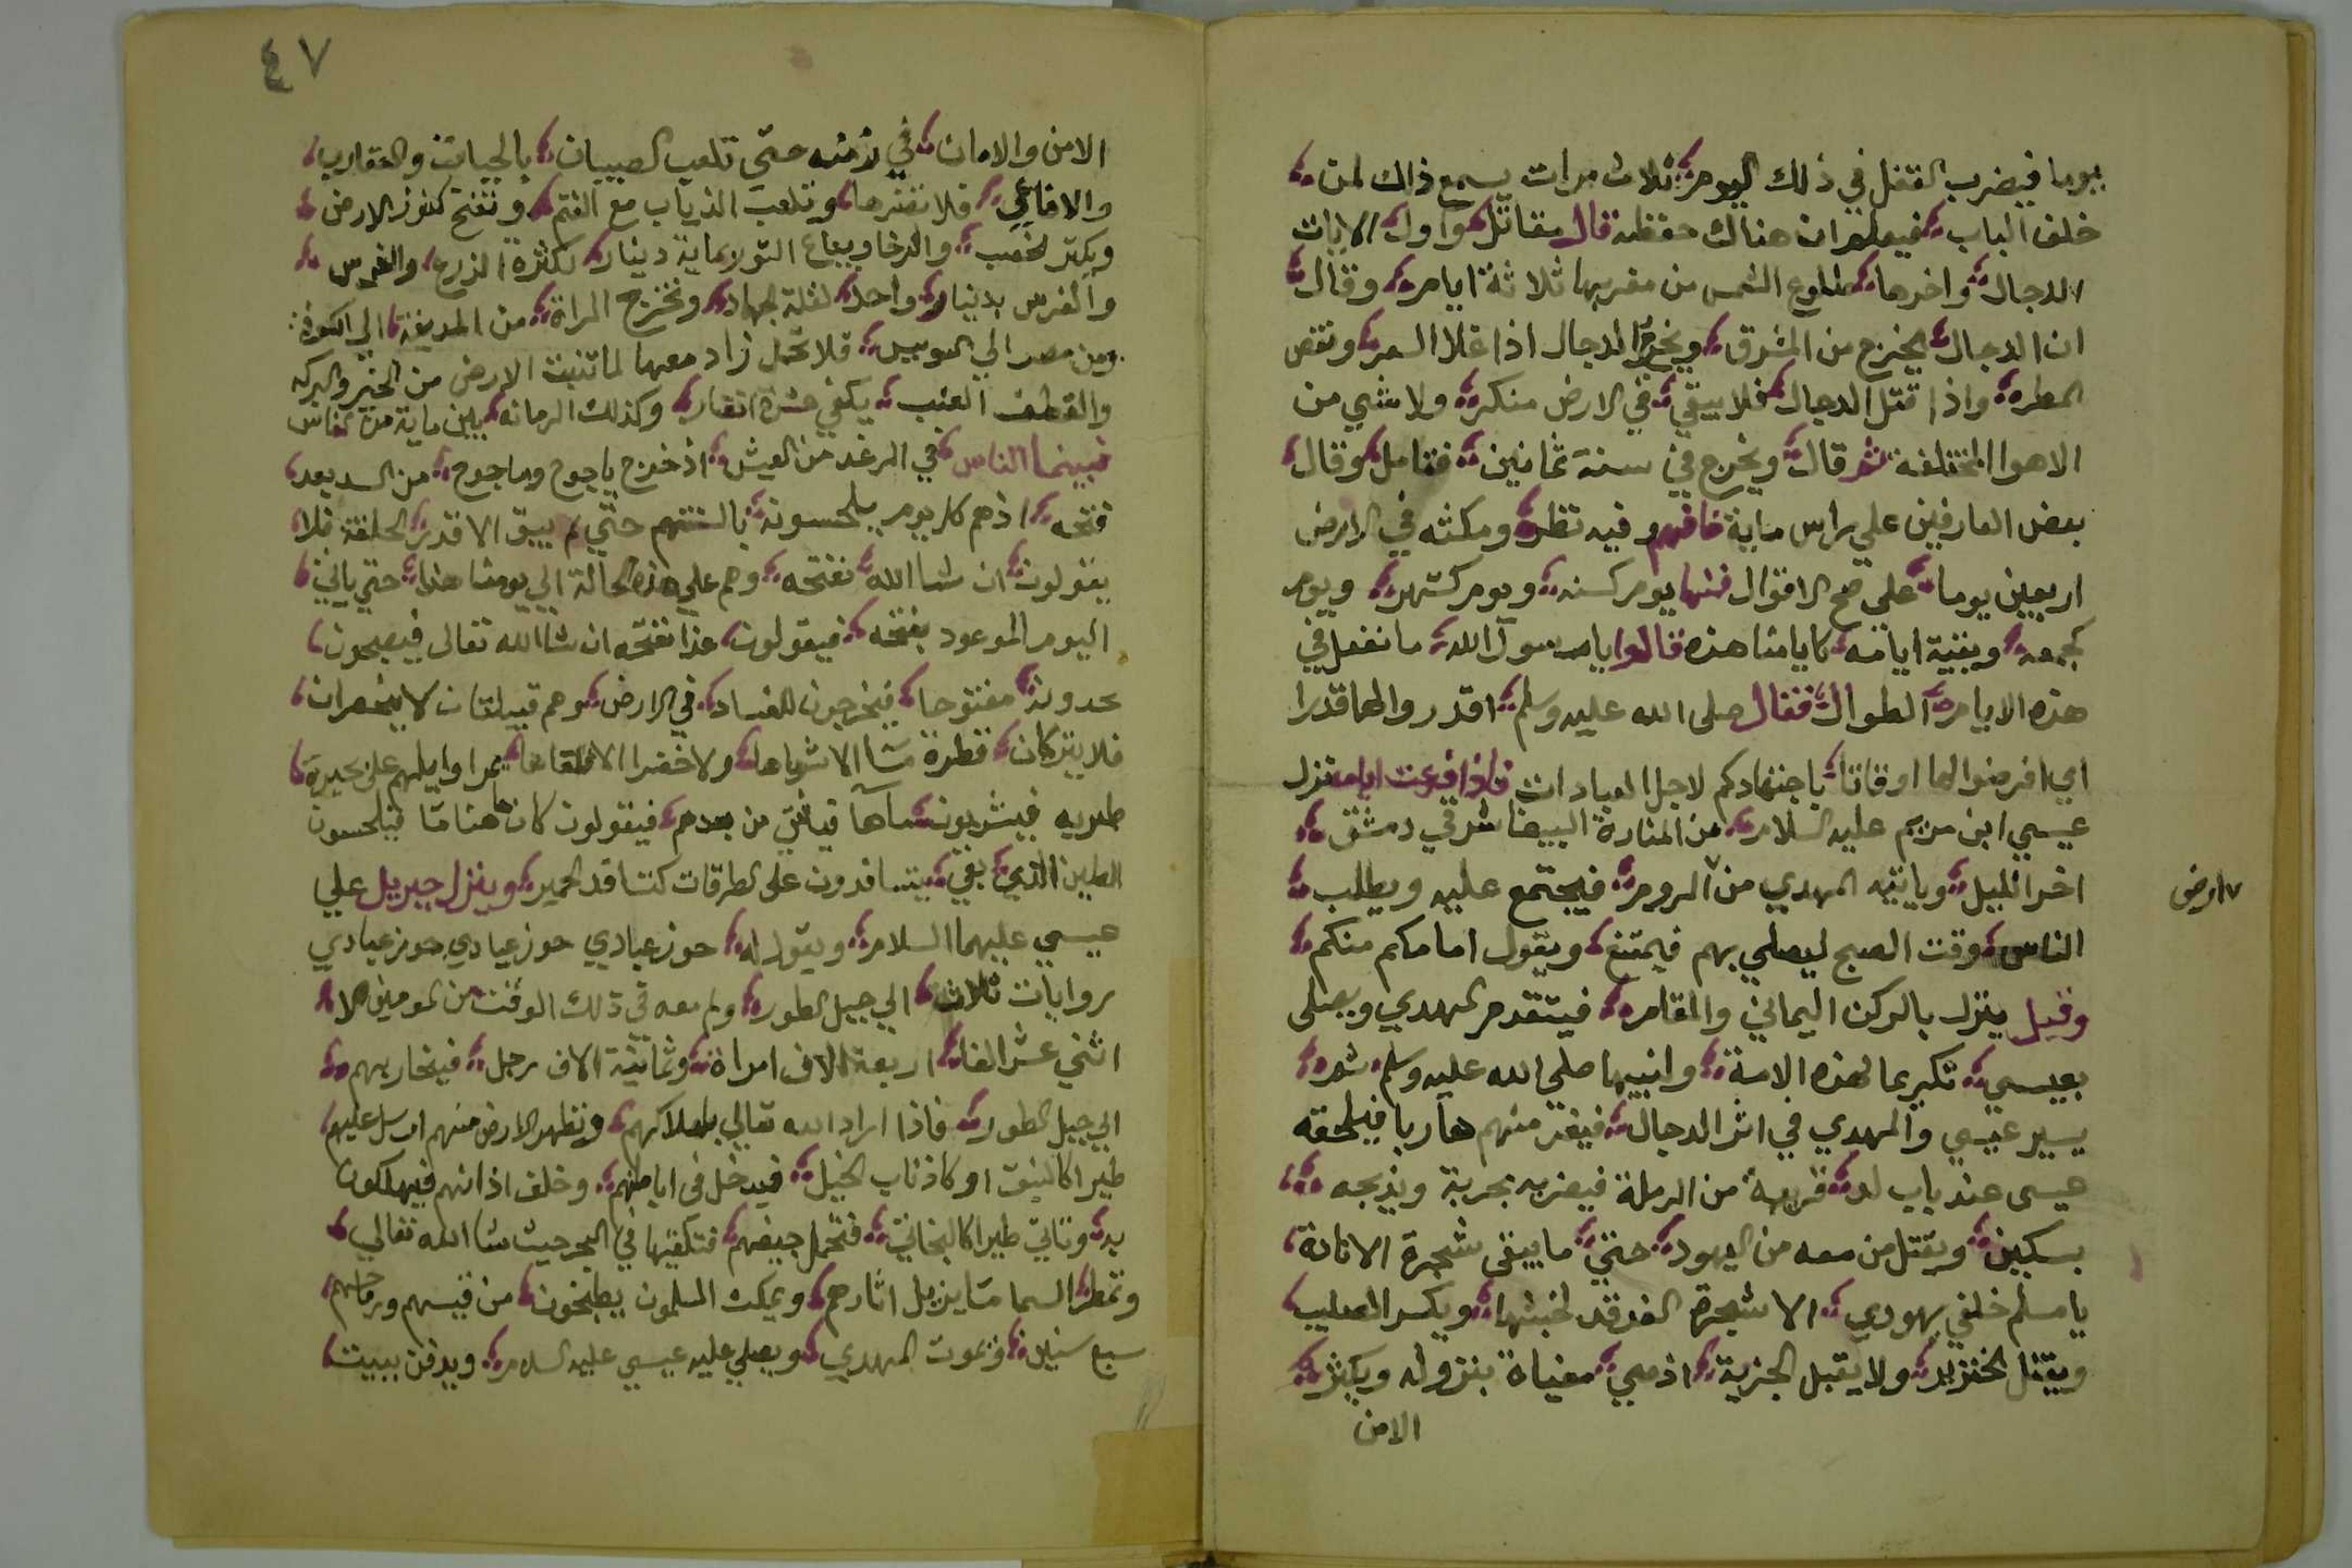 يوما فيضرب القفل في ذلك اليوم ثلاث مرات يسمع ذلك لمن
خلف الباب فيعلم ان هناك حفظه قال مقاتل واول الايات
الدجال واخرها طلوع الشمس من مغربها ثلاثة ايام وقال
ان الدجال يخرج من المشرق ويخرج الدجال اذا غلا السعر ونقص
المطر واذا قتل الدجال فلا يبقي في الارض منكر ولا شي من
الاهوا المختلفة ثم قال ويخرج في سنة ثمانين فتامل وقال
بعض العارفين علي راس ماية فافهم وفيه نظر ومكثه في الارض
اربعين يوما علي صح الاقوال فمنها يوم كسنه ويوم كشهر ويوم
كجمعه وبقية ايامه كايامنا هذه قالوا يا رسول الله ما نفعل في
هذه الايام الطوال فقال صلى الله عليه وسلم اقدروا لها قدرا
اي افرضوا لها اوقاتا باجتهادكم لاجل العبادات فاذا فرغت ايامه نزل
عيسي ابن مريم عليه السلام من المنارة البيضا شرقي دمشق
اخر الليل وياتيه المهدي من الروم فيجتمع عليه ويطلب
ارض
الناس وقت الصبح ليصلي بهم فيمتنع ويقول امامكم منكم
وقيل ينزل بالركن اليماني والمقام فيتقدم المهدي ويصلى
بعيسي تكريما لهذه الامة ونبيها صلي الله عليه وسلم ثم
يسير عيسي والمهدي في اثر الدجال فيفر منهم هاربا فيلحقه
عيسى عند باب لد قرية من الرملة فيضربه بحربة ويذبحه
بسكين ويقتل من معه من اليهود حتي ما يبقى شجرة الا نادة
يا مسلم خلفي يهودي الا شجرة الغرقد لخبثها ويكسر الصليب
ويقتل الخنزير ولا يقبل الجزية اذ هي مغياة بنزوله ويكثر
الامن
٤٧
الامن والامان في زمنه حتي تلعب الصبيان بالحيات والعقارب
والافاعي فلا تضرها وتلعب الذياب مع الغنم وتفتح كنوز الارض
ويكثر الخصب والرخا ويباع الثور بماية دينار لكثرة الزرع والغرس
والفرس بدينار واحد لقلة الجهاد وتخرج المراة من المدينة الي الكوفة
ومن مصر الي السويس فلا تحمل زاد معها لما تنبت الارض من الخير والبركه
والقطف العنب يكفي عشرة انفار وكذلك الرمانه بين ماية من الناس
فبينما الناس في الرغد من العيش اذ خرج ياجوج وماجوج من السد بعد
فتحه اذ هم كل يوم يلحسونه بالسنتهم حتي لم يبق الا قدر الحلقة فلا
يقولون ان شا الله نفتحه وهم علي هذه الحالة الي يومنا هذا حتي ياتي
اليوم الموعود بفتحه فيقولون غدا نفتحه ان شا الله تعالى فيصبحون
يجدونه مفتوحا فيخرجون للفساد في الارض وهم قبيلتان لا ينحصران
فلا يتركان قطرة ما الا شرباها ولا خضرا الا قلعاها يمر اوايلهم علي بحيرة
طبريه فيشربون ماها فياتي من بعدهم فيقولون كان هاهنا ما فيلحسون
الطين الذي بقي يتسافدون على الطرقات كتسافد الحمير وينزل جبريل علي
عيسي عليهما السلام ويقول له حوز عبادي حوز عبادي حوز عبادي
روايات ثلاث الي جبل الطور ولم معه في ذلك الوقت من المومنين الا
اثني عشر الفا اربعة الاف امراة وثمانية الاف رجل فيحاربهم
الي جبل الطور فاذا اراد الله تعالي باهلاكهم وتطهر الارض منهم ارسل عليهم
طيرا كالنيق او كاذناب الخيل فيدخل في اباطهم وخلف اذانهم فيهلكون
به وتاتي طيرا كالبخاتي فتحمل جيفهم فتلقيها في البحر حيث شا الله تعالي
وتمطر السما ما يزيل اثارهم ويمكث المسلمون يطبخون من قسيهم ورماحهم
سبع سنين ويموت المهدي ويصلي عليه عيسي عليه السلام ويدفن ببيت